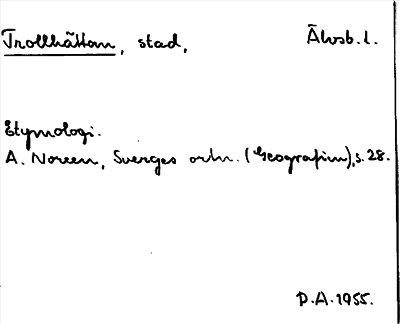 Trollhättan, stad, Älvsb. l.
Etymologi.
A. Noreen, Sveriges ortn. (Geografien), s. 28.
P.A. 1955.